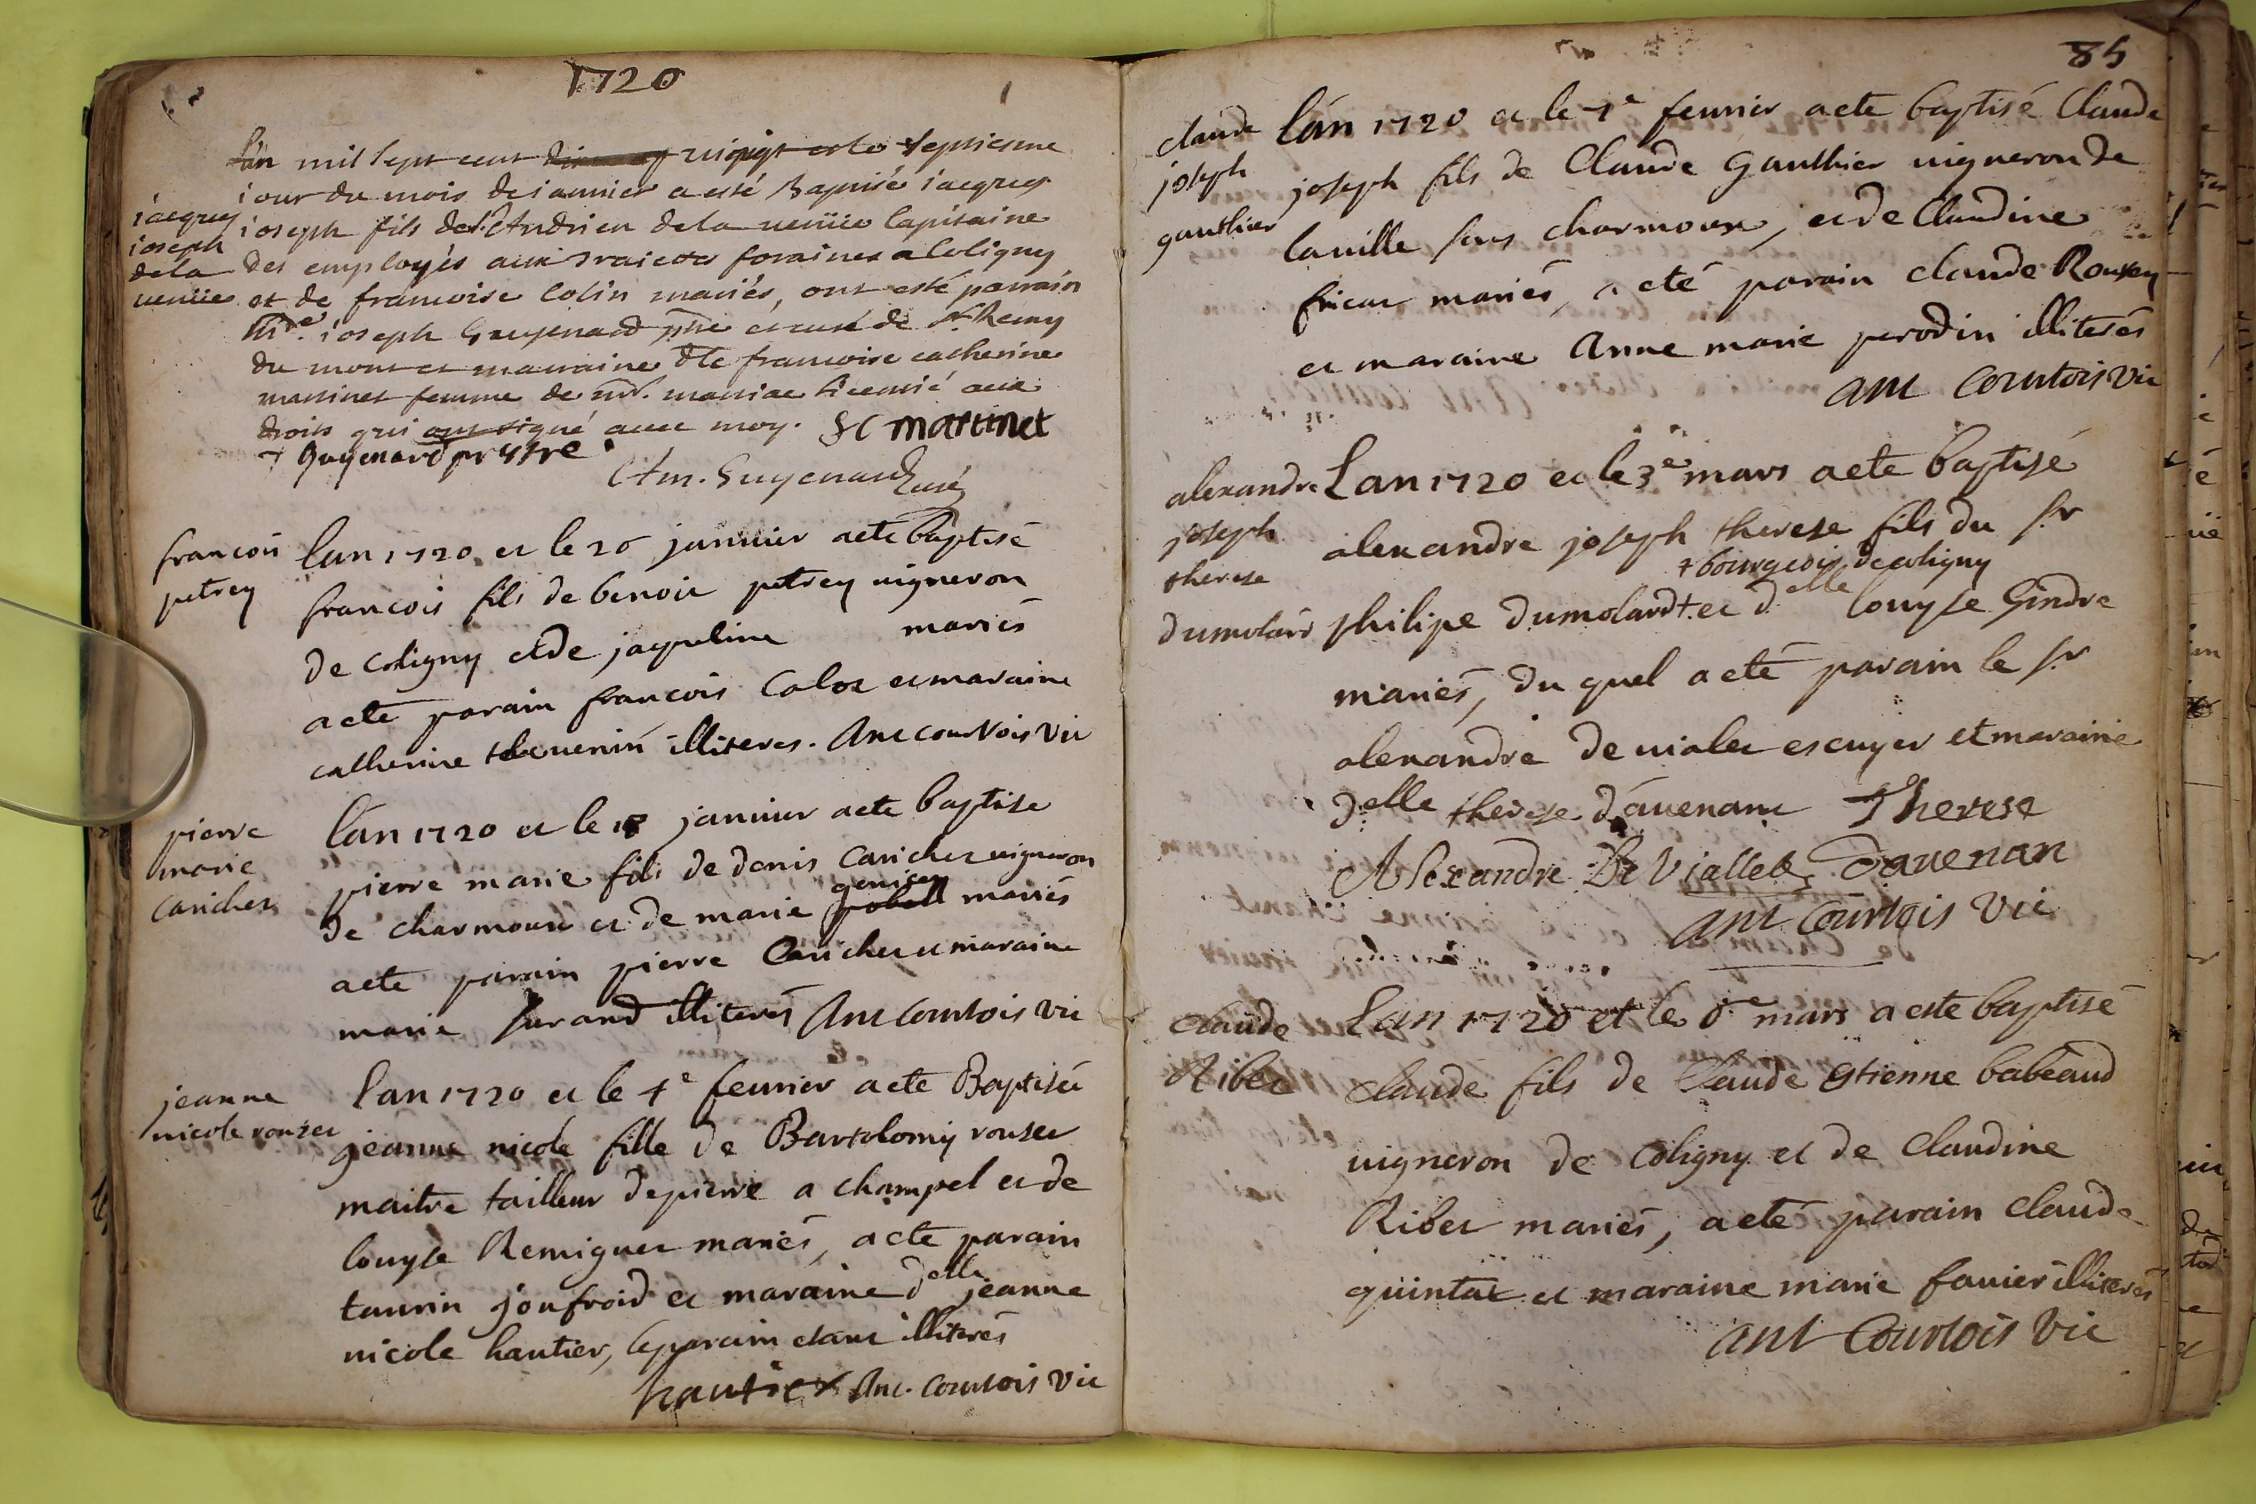 1720
Lan mil sept cent vingt et le septiesme
jour du mois de januier a esté Baptisé jacques
jacques
joseph
dela
venüe
joseph fils de sr Andrien dela venüe Capitaine
des employés aux traictes foraines a Coligny
et de francoise Colin mariés, ont esté parrain
joseph Guyenard ptre et curé de St Remy
du mont et marraine dlle francoise catherine
martinet femme de mr. maniae licentié aux
droits qui ont signé avec moy. f C martinet
+ Guyenard prestre
Am. Guyenard Curé
francois
petrey
lan 1720 et le 26 januier a eté baptisé
francois fils de benoit petrey uigneron
de coligny et de jaqueline mariés
a eté parain francois Caloz et maraine
catherine theuenin illiteres. Ant courtois vic
pierre
marie
carichet
lán 1720 et le 18 januier a eté baptisé
pierre marie fils de denis Carichet uigneron
de charmoux et de marie genisey mariés
a eté parain pierre Carichet et maraine
marie Jurand illiterés Ant Courtois vic
jeanne
nicole rouset
lan 1720 et le 1e feurier a eté Baptiséé
jeanne nicole fille de Bartolomy rouset
maitre tailleur de pierre a champel et de
louyse Remiguet mariés, a eté parain
taurin joufroid et maraine delle jeanne
nicole hautier, le parain etant illiterés
hautier Ant. Courtois Vic
85
claude
joseph
gauthier
lán 1720 et le 1e feurier a eté baptisé Claude
joseph fils de Claude Gauthier uigneron de
lauille sous charmoux, et de Claudine
fricat mariés, a eté parain claude Roussey
et maraine Anne marie perodin illiterés
ant Courtois Vic
alexandre
joseph
therese
dumolard
Lan 1720 et le 3e mars a eté baptisé
alexandre joseph therese fils du sr
+ bourgeois de coligny
philipe dumolard + et delle louyse Gindre
mariés, du quel a eté parain le sr
alexandre de uialet escuyer et maraine
delle therese dáuenant Therese
Alexandre De Viallet Dauenan
ant Courtois Vic
claude
Ribet
Lan 1720 et le 6e mars a este baptisé
claude fils de Claude estienne babéaud
uigneron de coligny et de Claudine
Ribet mariés, a eté parain claude
quintat et maraine marie fauier illiterés
ant Courtois Vic